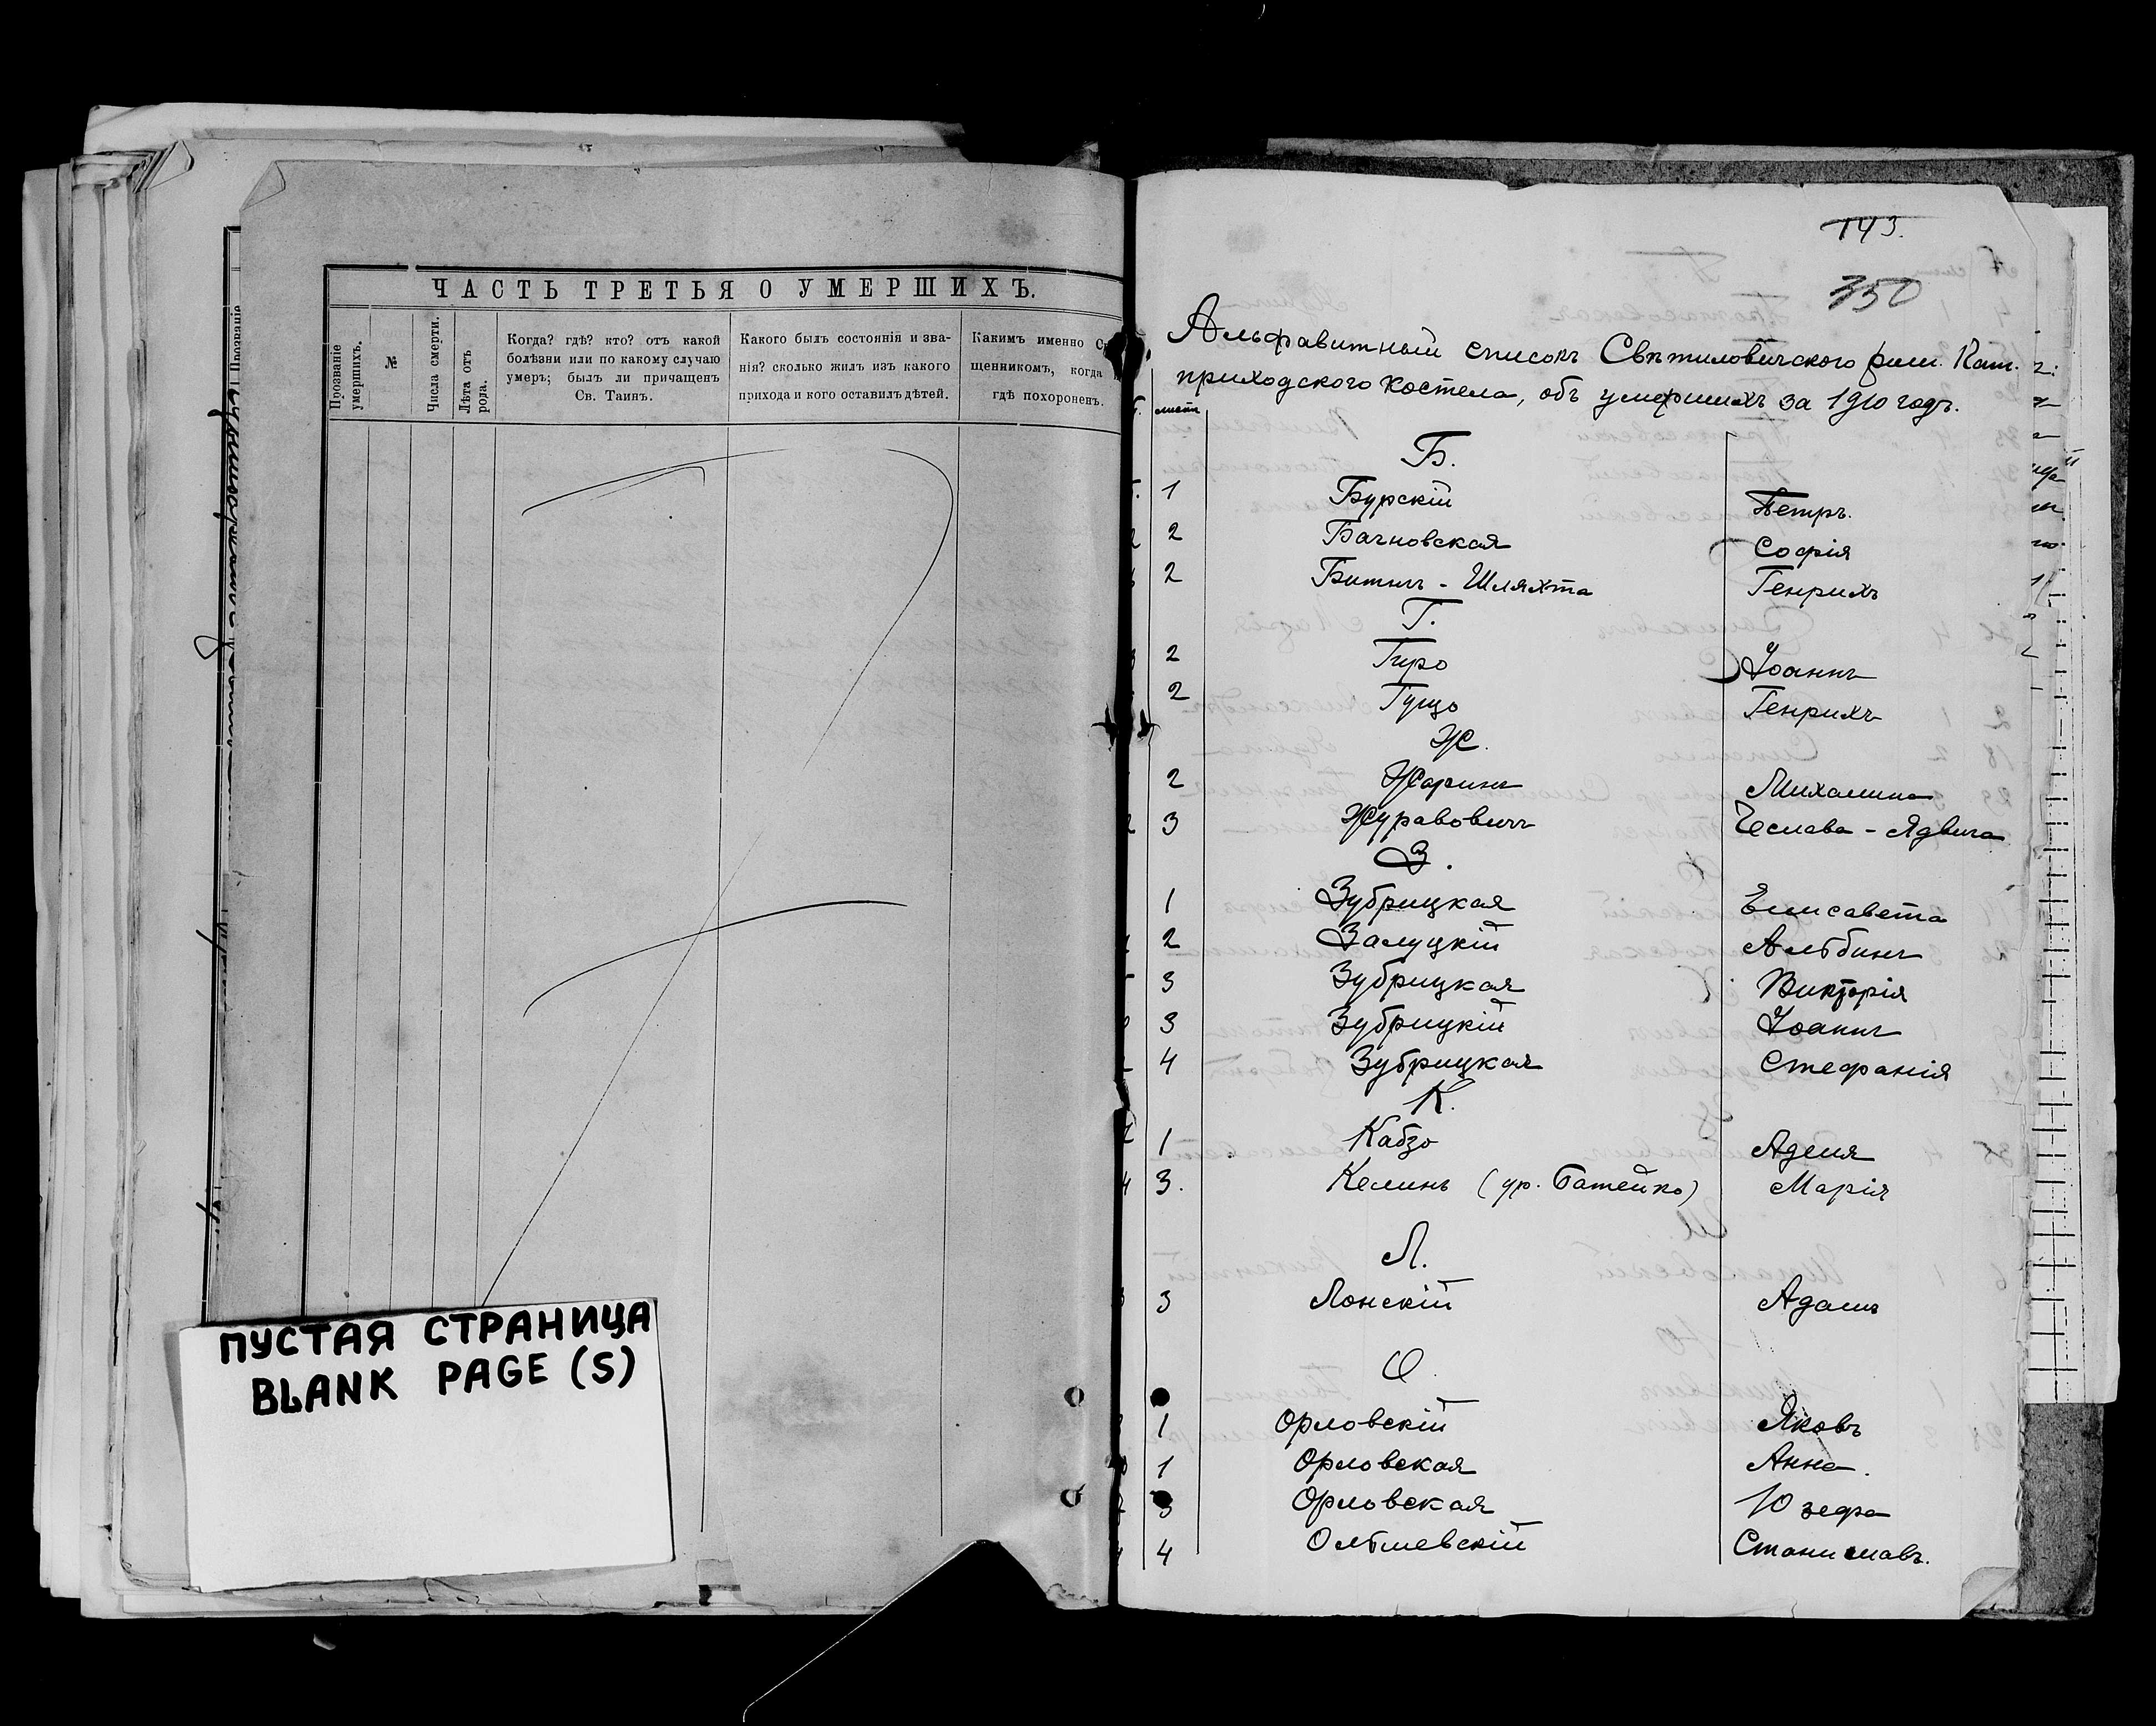 ЧАСТЬ ТРЕТЬЯ О УМЕРШИХЪ.
Прозваніе умершихъ.
№
Числа смерти.
Лѣта отъ рода.
Когда? гдѣ? кто? отъ какой
болѣзни или по какому случаю
умеръ; былъ ли причащенъ
Св. Таинъ.
Какого былъ состоянія и зва-
нія? сколько жилъ изъ какого
прихода и кого оставилъ дѣтей.
Какимъ именно
щенникомъ, когда
гдѣ похороненъ.
ПУСТАЯ СТРАНИЦА
BLANK PAGE (S)
143.
350
Альфавитный списокъ Свѣтиловичского рим. Кат.
приходского костела, объ умершихъ за 1910 годъ.
листъ
Б.
1 Бурскій Петръ.
2 Бачновская Софія
2 Битни - Шляхта Генрихъ
Г.
2 Гиро Іоаннъ
2 Гущо Генрихъ
Ж.
2 Жаринъ Михалина
3 Журавовичъ Чеслава - Ядвига
З.
1 Зубрицкая Елисавета
2 Залуцкій Альбинъ
3 Зубрицкая Викторія
3 Зубрицкій Іоаннъ
4 Зубрицкая Стефанія
К.
1 Кабзо Аделя
3. Келинъ (ур. Батейко) Марія
Л.
3 Лонскій Адамъ
О.
1 Орловскій Яковъ
1 Орловская Анна.
3 Орловская Юзефа
4 Ольшевскій Станиславъ.